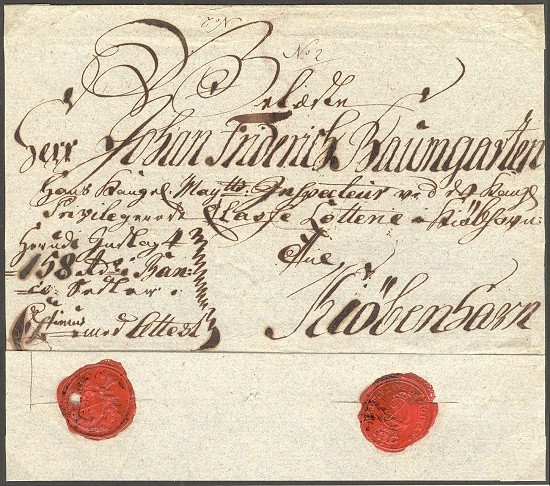 No 2
No 2
Velædle
Herr Johan Friderich Baumgarten
Hans Kongel: Maytts. Inspecteur ved det Kongel
Privilegerede Classe Lotterie i Kiöbhavn:
Herudi Indlagt
158 Rdr Ban=
co Sedler.
med Attest
Kiöbenhavn